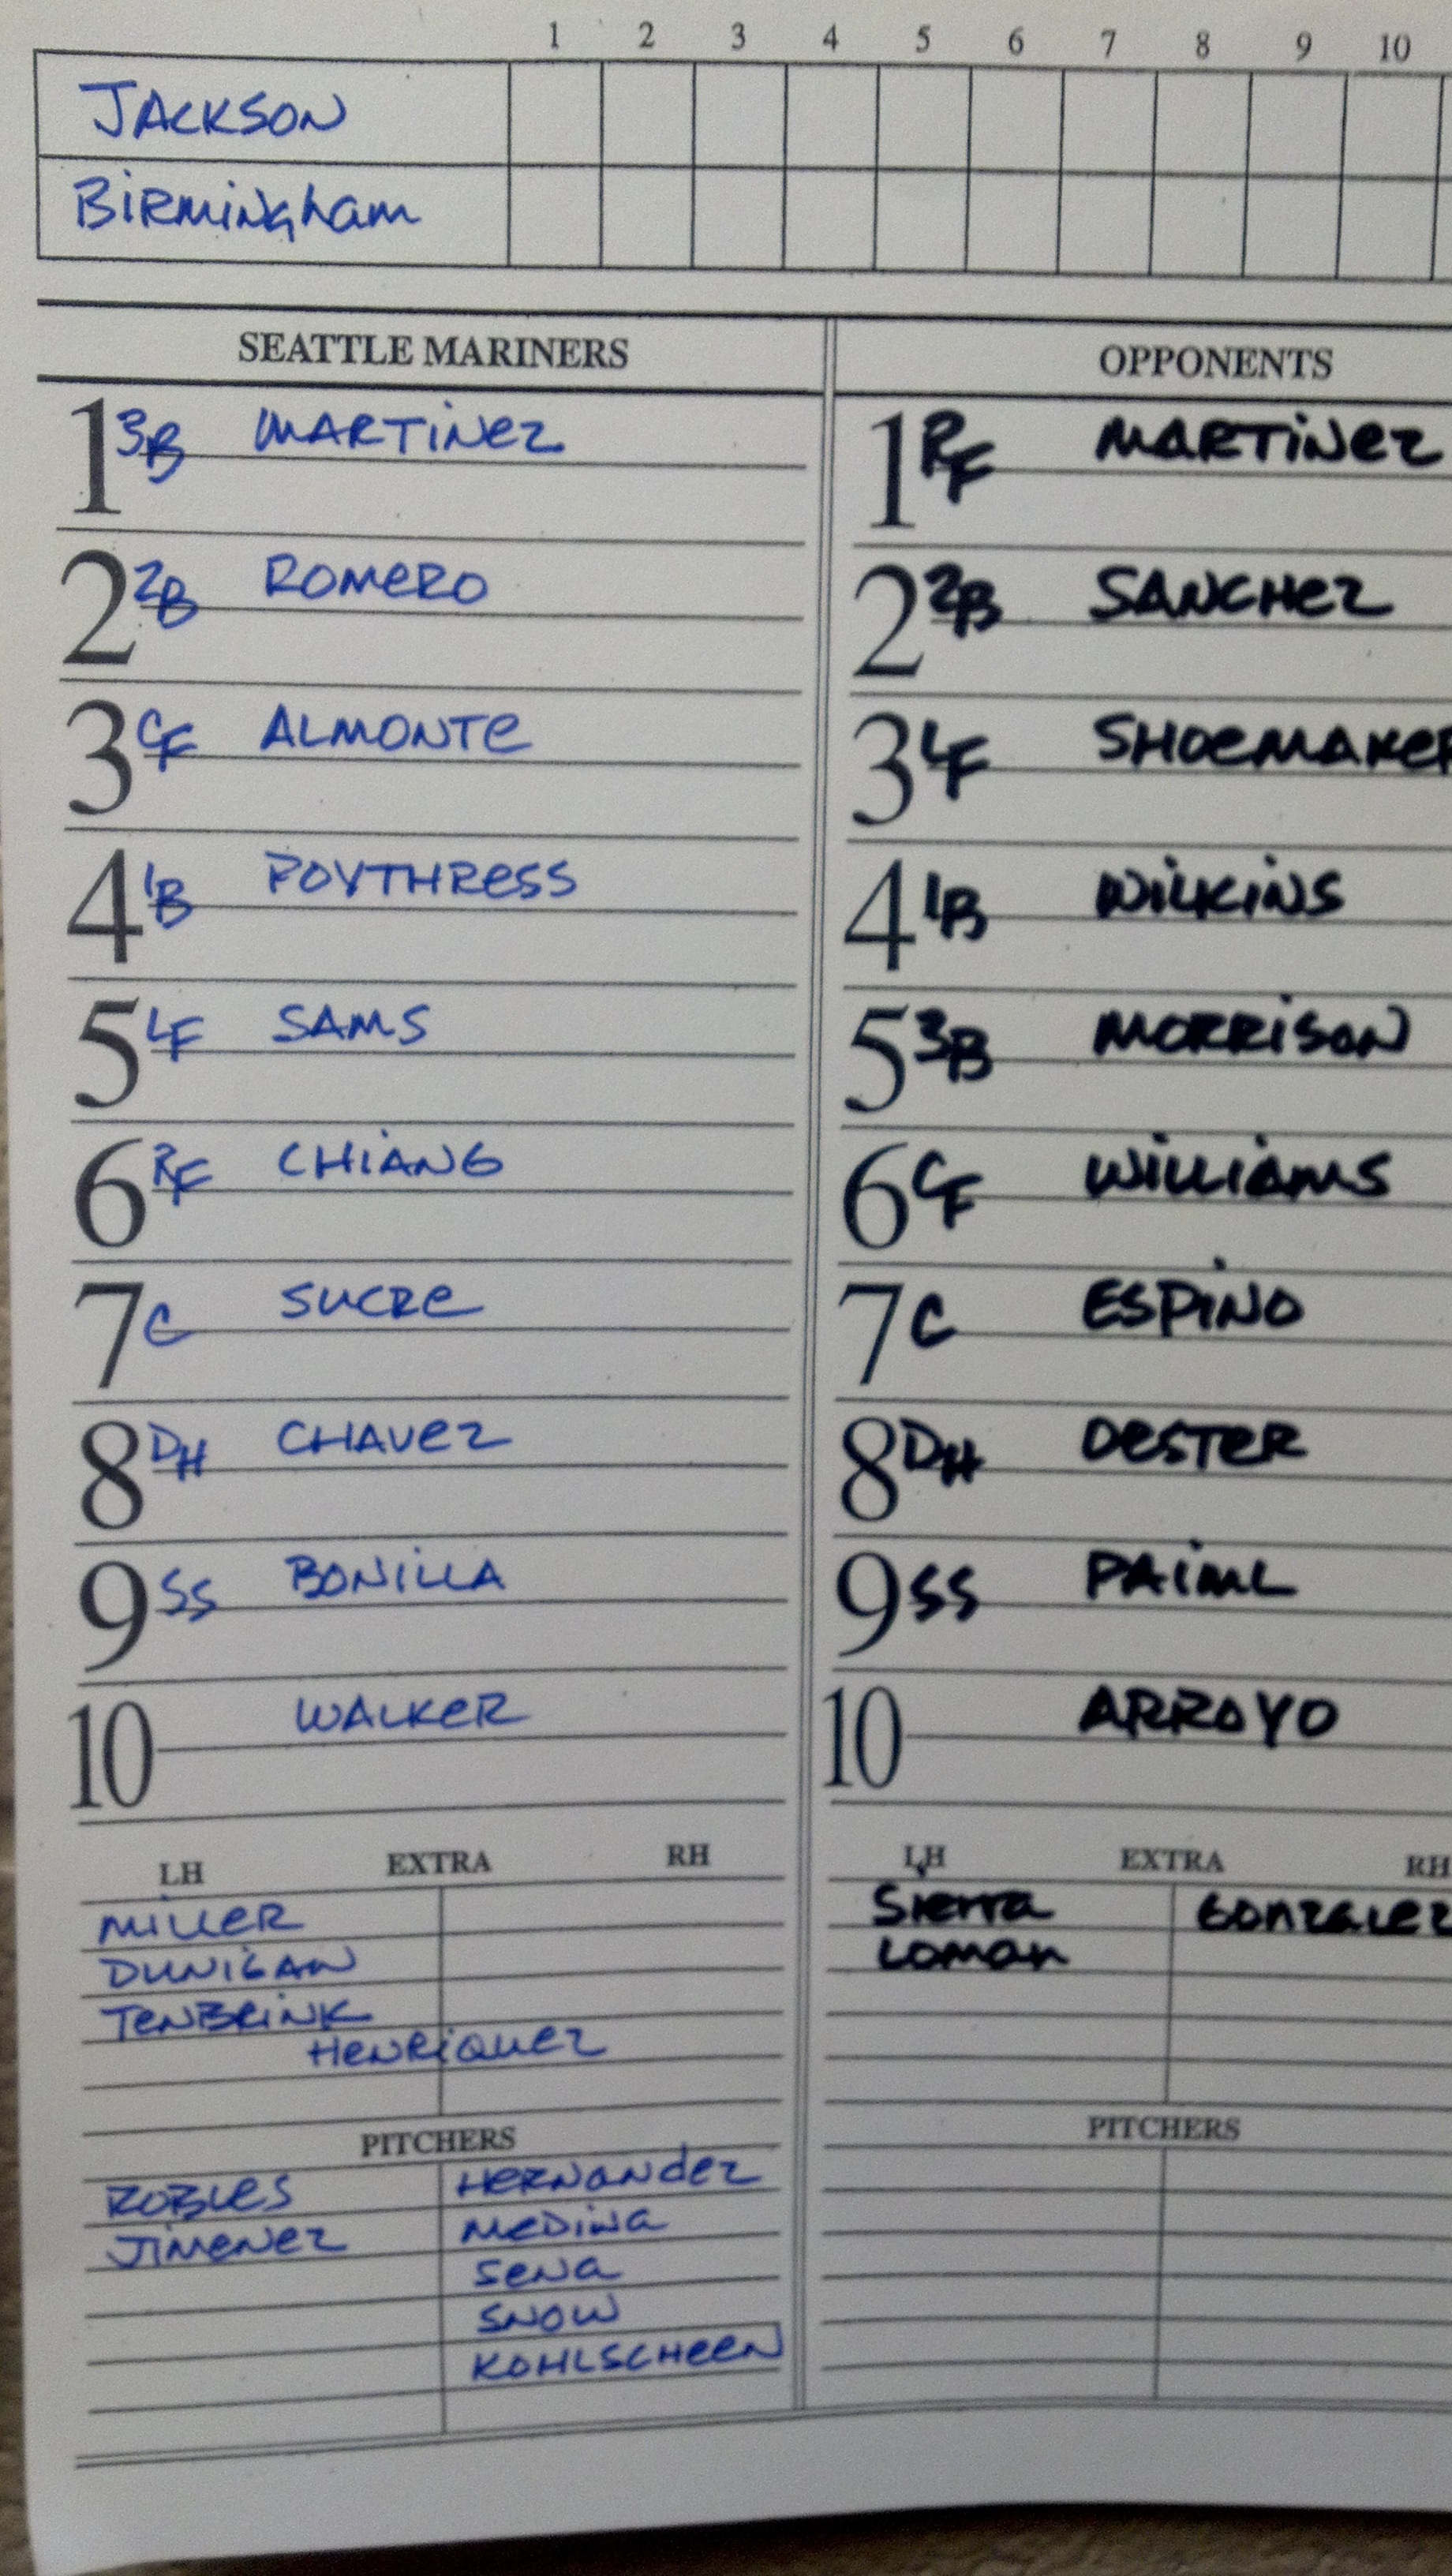 1 2 3 4 5 6 7 8 9 10
JACKSON
BIRMINGham
SEATTLE MARINERS
1 3B MARTINez
2 2B ROMeRO
3 CF ALMONTe
4 1B POYTHRess
5 LF SAMS
6 RF CHIANG
7 C SUCRe
8 DH CHAVez
9 SS BONILLA
10 WALKeR
LH EXTRA RH
MILLeR
DUNIGAN
TeNBRINK
HeNRIQUez
PITCHERS
ROBLeS HeRNaNdez
JIMeNez MeDINa
SeNa
SNOW
KOHLSCHeeN
OPPONENTS
1 RF MARTINez
2 2B SANCHez
3 LF SHOeMAKeR
4 1B WILKINS
5 3B MORRISON
6 CF WILLIAMS
7 C ESPINO
8 DH OeSTeR
9 SS PAIML
10 ARROYO
LH EXTRA RH
Sierra Gonzalez
Loman
PITCHERS